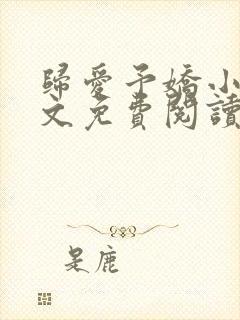 歸愛予嬌小
文免費閱讀
是鹿